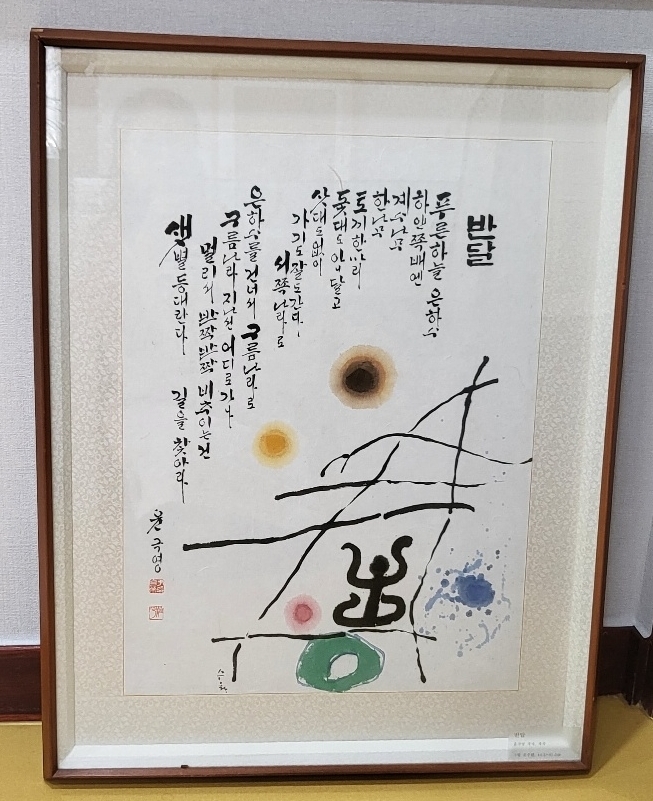 반달
푸른하늘 은하수
하얀쪽배엔
계수나무
한나무
토끼한마리
돛대도 아니달고
삿대도없이
가기도잘도간다
서쪽나라로
은하수를 건너서 구름나라로
구름나라 지나선 어디로가나
멀리서 반짝반짝 비추이는건
샛별등대란다 길을 찾아라
윤극영
반달